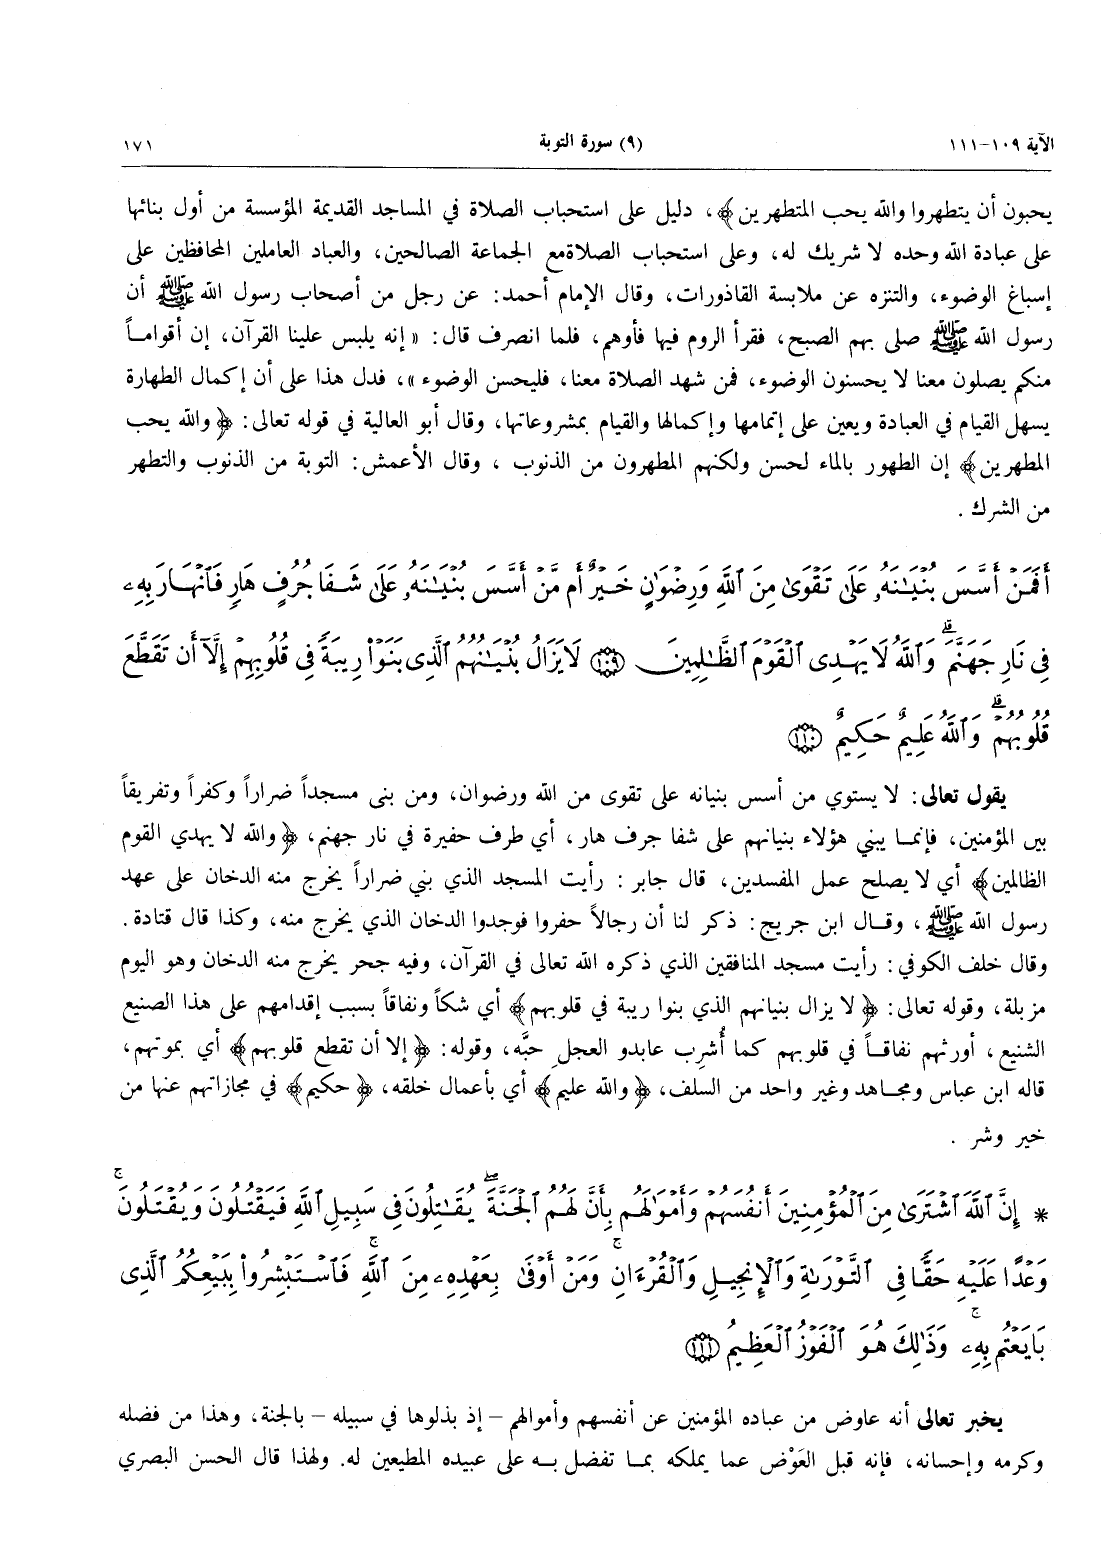 الآية ١٠٩-١١١
(٩) سورة التوبة
١٧١
يحبون أن يتطهروا والله يحب المتطهرين﴾، دليل على استحباب الصلاة في المساجد القديمة المؤسسة من أول بنائها
على عبادة الله وحده لا شريك له، وعلى استحباب الصلاةمع الجماعة الصالحين، والعباد العاملين المحافظين على
إسباغ الوضوء، والتنزه عن ملابسة القاذورات، وقال الإمام أحمد: عن رجل من أصحاب رسول الله ﷺ أن
رسول الله ﷺ صلى بهم الصبح، فقرأ الروم فيها فأوهم، فلما انصرف قال: «إنه يلبس علينا القرآن، إن أقواماً
منكم يصلون معنا لا يحسنون الوضوء، فمن شهد الصلاة معنا، فليحسن الوضوء»، فدل هذا على أن إكمال الطهارة
يسهل القيام في العبادة ويعين على إتمامها وإكمالها والقيام بمشروعاتها، وقال أبو العالية في قوله تعالى: ﴿والله يحب
المطهرين﴾ إن الطهور بالماء لحسن ولكنهم المطهرون من الذنوب ، وقال الأعمش: التوبة من الذنوب والتطهر
من الشرك .
أَفَمَنْ أَسَّسَ بُنْيَـٰنَهُۥ عَلَىٰ تَقْوَىٰ مِنَ ٱللَّهِ وَرِضْوَٰنٍ خَيْرٌ أَم مَّنْ أَسَّسَ بُنْيَـٰنَهُۥ عَلَىٰ شَفَا جُرُفٍ هَارٍ فَٱنْهَارَ بِهِۦ
فِى نَارِ جَهَنَّمَ ۗ وَٱللَّهُ لَا يَهْدِى ٱلْقَوْمَ ٱلظَّـٰلِمِينَ ﴿١٠٩﴾ لَا يَزَالُ بُنْيَـٰنُهُمُ ٱلَّذِى بَنَوْا۟ رِيبَةً فِى قُلُوبِهِمْ إِلَّآ أَن تَقَطَّعَ
قُلُوبُهُمْ ۗ وَٱللَّهُ عَلِيمٌ حَكِيمٌ ﴿١١٠﴾
يقول تعالى: لا يستوي من أسس بنيانه على تقوى من الله ورضوان، ومن بنى مسجداً ضراراً وكفراً وتفريقاً
بين المؤمنين، فإنما يبني هؤلاء بنيانهم على شفا جرف هار، أي طرف حفيرة في نار جهنم، ﴿والله لا يهدي القوم
الظالمين﴾ أي لا يصلح عمل المفسدين، قال جابر : رأيت المسجد الذي بني ضراراً يخرج منه الدخان على عهد
رسول الله ﷺ، وقال ابن جريج: ذكر لنا أن رجالاً حفروا فوجدوا الدخان الذي يخرج منه، وكذا قال قتادة.
وقال خلف الكوفي: رأيت مسجد المنافقين الذي ذكره الله تعالى في القرآن، وفيه جحر يخرج منه الدخان وهو اليوم
مزبلة، وقوله تعالى: ﴿لا يزال بنيانهم الذي بنوا ريبة في قلوبهم﴾ أي شكاً ونفاقاً بسبب إقدامهم على هذا الصنيع
الشنيع، أورثهم نفاقاً في قلوبهم كما أُشرِب عابدو العجلِ حبَّه، وقوله: ﴿إلا أن تقطع قلوبهم﴾ أي بموتهم،
قاله ابن عباس ومجاهد وغير واحد من السلف، ﴿والله عليم﴾ أي بأعمال خلقه، ﴿حكيم﴾ في مجازاتهم عنها من
خير وشر .
* إِنَّ ٱللَّهَ ٱشْتَرَىٰ مِنَ ٱلْمُؤْمِنِينَ أَنفُسَهُمْ وَأَمْوَٰلَهُم بِأَنَّ لَهُمُ ٱلْجَنَّةَ ۖ يُقَـٰتِلُونَ فِى سَبِيلِ ٱللَّهِ فَيَقْتُلُونَ وَيُقْتَلُونَ ۚ
وَعْدًا عَلَيْهِ حَقًّا فِى ٱلتَّوْرَىٰةِ وَٱلْإِنجِيلِ وَٱلْقُرْءَانِ ۚ وَمَنْ أَوْفَىٰ بِعَهْدِهِۦ مِنَ ٱللَّهِ ۚ فَٱسْتَبْشِرُوا۟ بِبَيْعِكُمُ ٱلَّذِى
بَايَعْتُم بِهِۦ ۚ وَذَٰلِكَ هُوَ ٱلْفَوْزُ ٱلْعَظِيمُ ﴿١١١﴾
يخبر تعالى أنه عاوض من عباده المؤمنين عن أنفسهم وأموالهم - إذ بذلوها في سبيله - بالجنة، وهذا من فضله
وكرمه وإحسانه، فإنه قبل العَوْض عما يملكه بما تفضل به على عبيده المطيعين له. ولهذا قال الحسن البصري